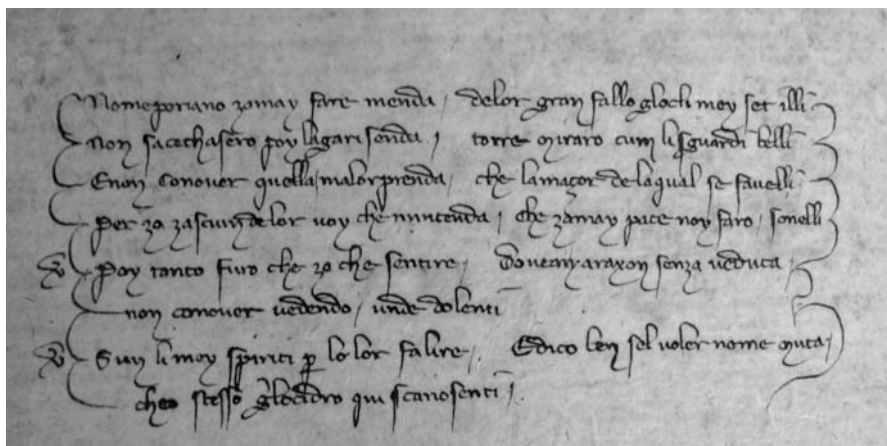 Nome poriano zomay fare menda / delor gran fallo glocli mey set illi
Non sacechasero poy lagarisenda / torre miraro cum lisguardi belli
Enon conover quella / malor prenda / che lamaçor delaqual se favelli
Per zo zascun delor voy che mintenda / che zamay pace noy faro / sonelli
Poy tanto furo che zo che sentire / dovean araxon senza veduta /
non conover vedendo / unde dolenti
Sun li mey spiriti p lo lor falire / Edico ben sel voler nome muta /
cheo stesso glocidro qui scanosenti /